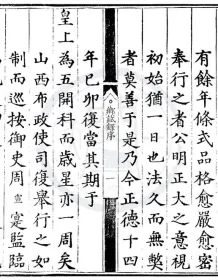 有餘年條式品格愈嚴愈密
奉行之者公明正大之意視
初始猶一日也法久而無獘
者莫善于是乃今正德十四
鄉試錄序
年巳卯復當其期于
皇上為五開科而歲星亦一周矣
山西布政使司復舉行之如
制而巡按御史周宣寔監臨